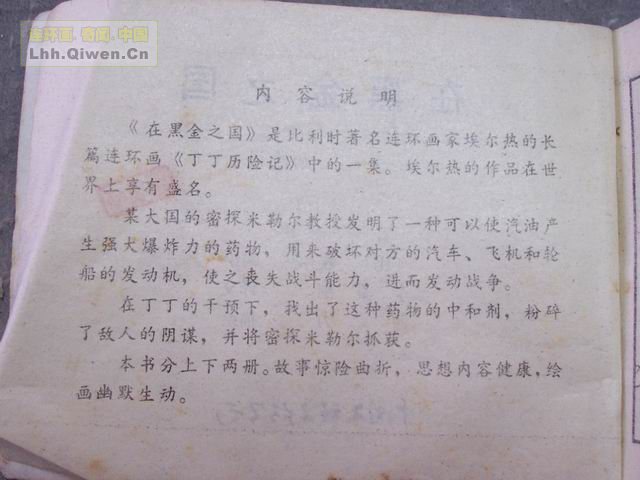 连环画.奇闻.中国
Lhh.Qiwen.Cn
内容说明
《在黑金之国》是比利时著名连环画家埃尔热的长
篇连环画《丁丁历险记》中的一集。埃尔热的作品在世
界上享有盛名。
某大国的密探米勒尔教授发明了一种可以使汽油产
生强大爆炸力的药物，用来破坏对方的汽车、飞机和轮
船的发动机，使之丧失战斗能力，进而发动战争。
在丁丁的干预下，找出了这种药物的中和剂，粉碎
了敌人的阴谋，并将密探米勒尔抓获。
本书分上下两册。故事惊险曲折，思想内容健康，绘
画幽默生动。